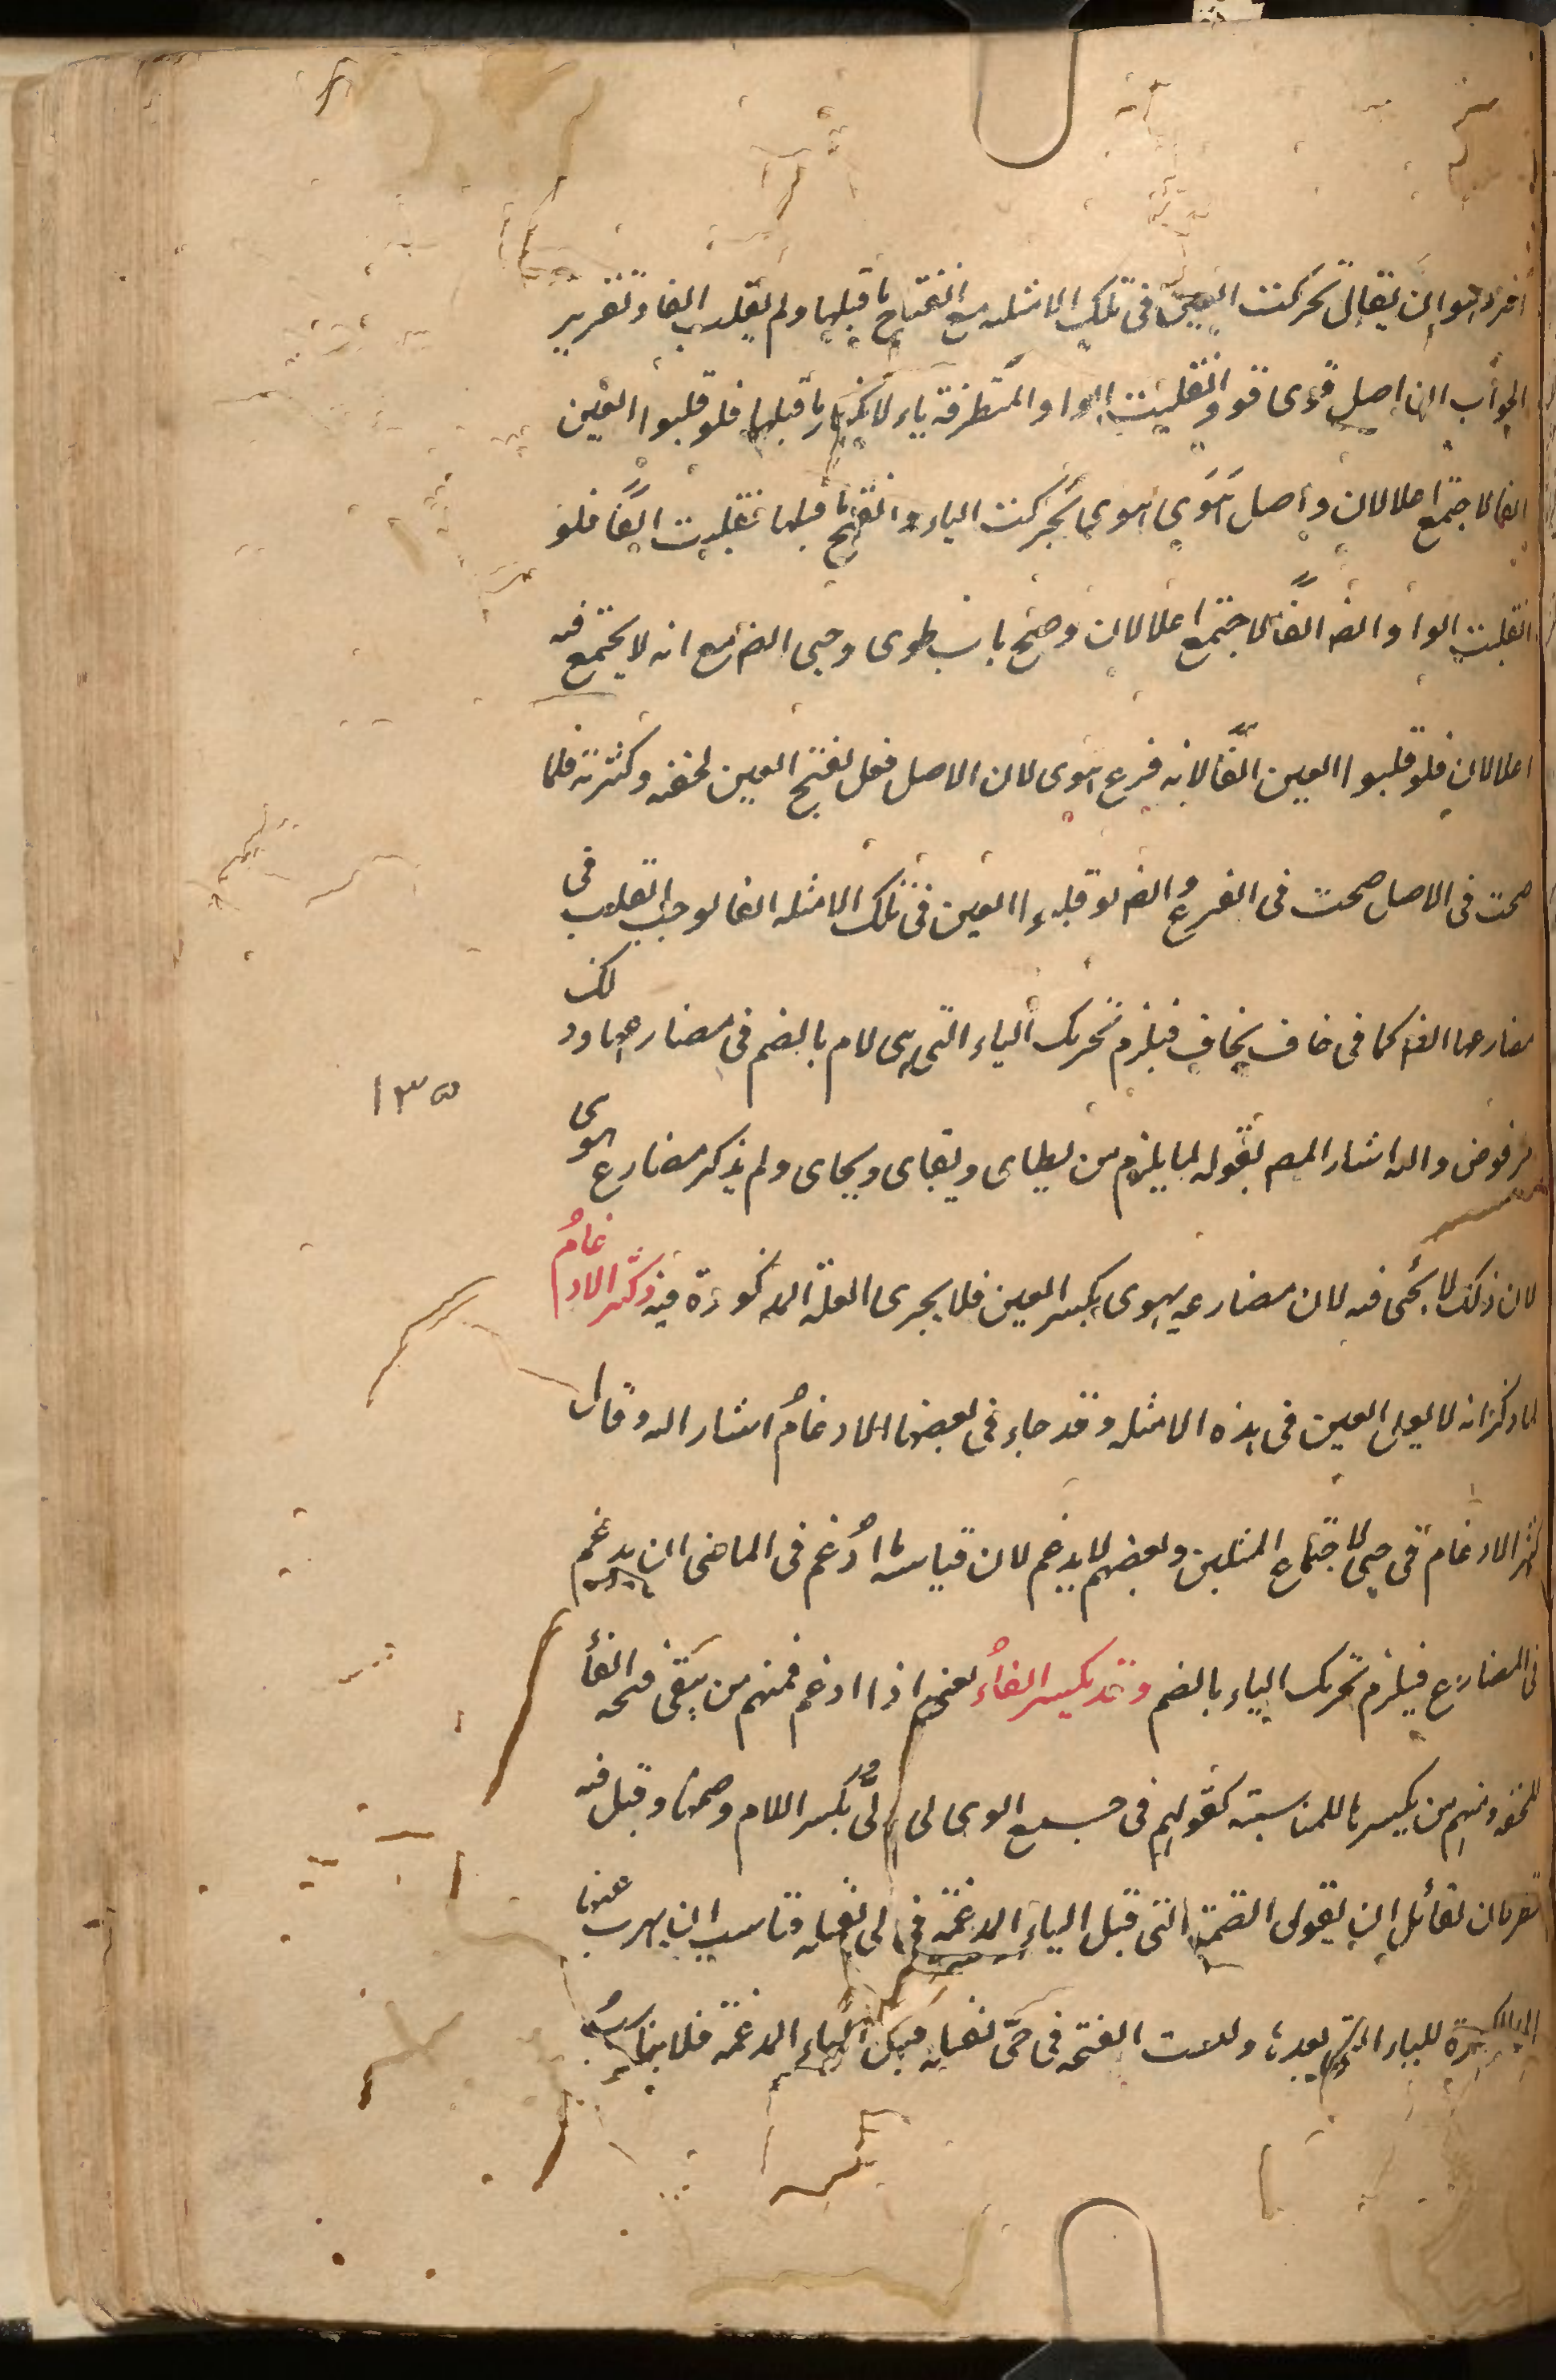 افره هو ان يقال تحركت العين فى تلك الامثلة مع انفتاح ما قبلها ولم تقلب الفا وتقرير
الجواب ان اصل قوى قوو انقلبت الواو المتطرفة ياء لانكسار ما قبلها فلو قلبوا العين
الفا لاجتمع اعلالان واصل هَوَى هوى تحركت الياء وانفتح ما قبلها نقلبت الفًا فلو
انقلبت الواو ايض الفًا لاجتمع اعلالان وصح باب طوى وحيى ايض مع انه لا يجتمع فيه
اعلالان فلو قلبوا العين الفًا لانه فرع هوى لان الاصل فعل بفتح العين لخفته وكثرته فلما
صحت فى الاصل صحت فى الفرع وايض لو قلبوا العين فى تلك الامثلة الفا لوجب القلب فى
مضارعها الفا كما فى خاف يخاف فيلزم تحريك الياء التى هى لام بالضم فى مضارعها وذلك
مرفوض واليه اشار المص بقوله لما يلزم من يطاى ويقاى ويحاى ولم يذكر مضارع هوى
لان ذلك لا يجئ فيه لان مضارعه يهوى بكسر العين فلا يجرى العلة المذكورة فيه وكثر الادغامُ
لما ذكر انه لا يعل العين فى هذه الامثلة وقد جاء فى بعضها الادغامُ اشار اليه وقال
كثر الادغام فى حيى لاجتماع المثلين وبعضهم لا يدغم لان قياس ما ادُغم فى الماضى ان يدغم
فى المضارع فيلزم تحريك الياء بالضم وقد يكسر الفاءُ يعنى اذا ادغم فمنهم من يبقى فتحه الفاء
للخفة ومنهم من يكسرها للمناسبة كقولهم فى جمع الوى لى ولُىٌّ بكسر اللام وضمها وقيل فيه
نظر لان لقائل ان يقول الضمة التى قبل الياء المدغمة فى لى ثقيلة فناسب ان يهرب عنها
الى الكسرة للياء التى بعدها وليست الفتحة فى حىّ ثقيلة قبل الياء المدغمة فلا يناسبُ
١٣٥